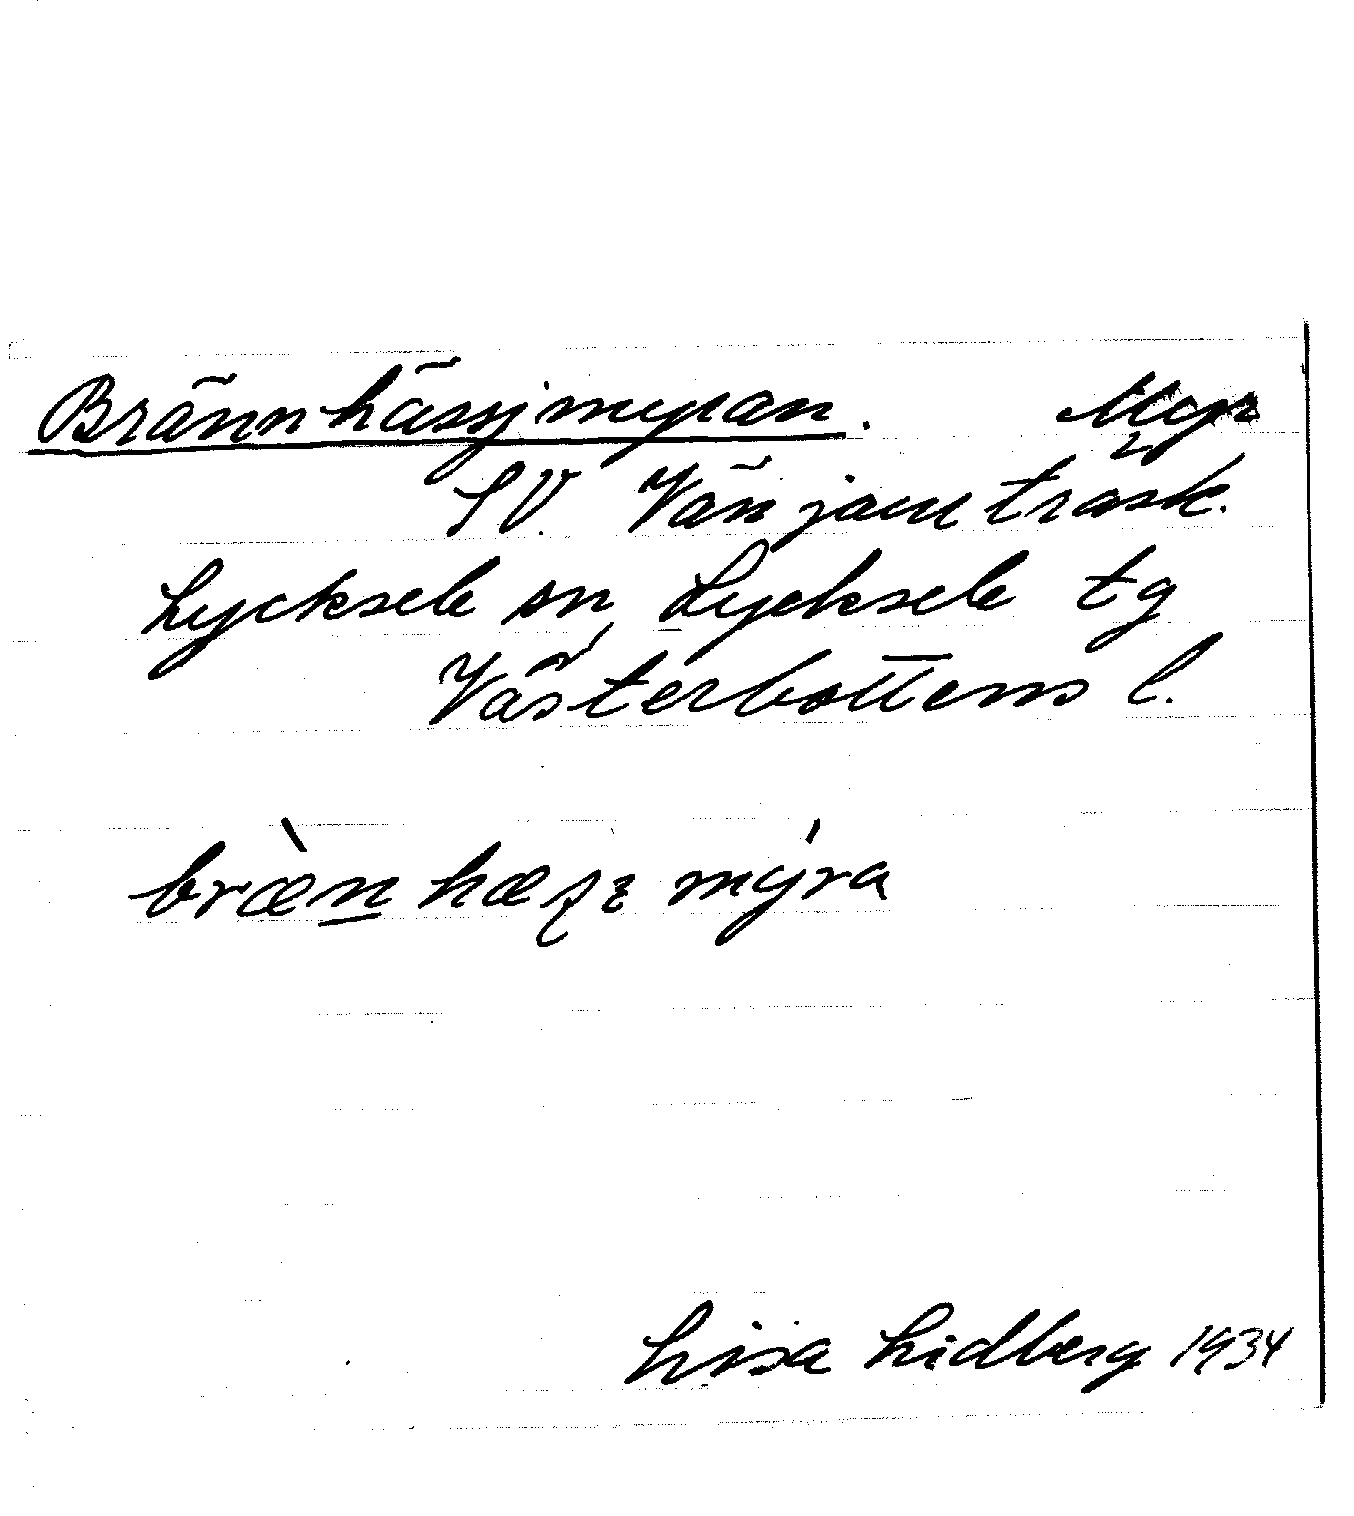 Brännhässjmyran. Myr
SV. Vänjaurträsk.
Lycksele sn, Lycksele tg
Västerbottens l.
bræ̀n hæʂɪ mýra
Lisa Lidberg 1934